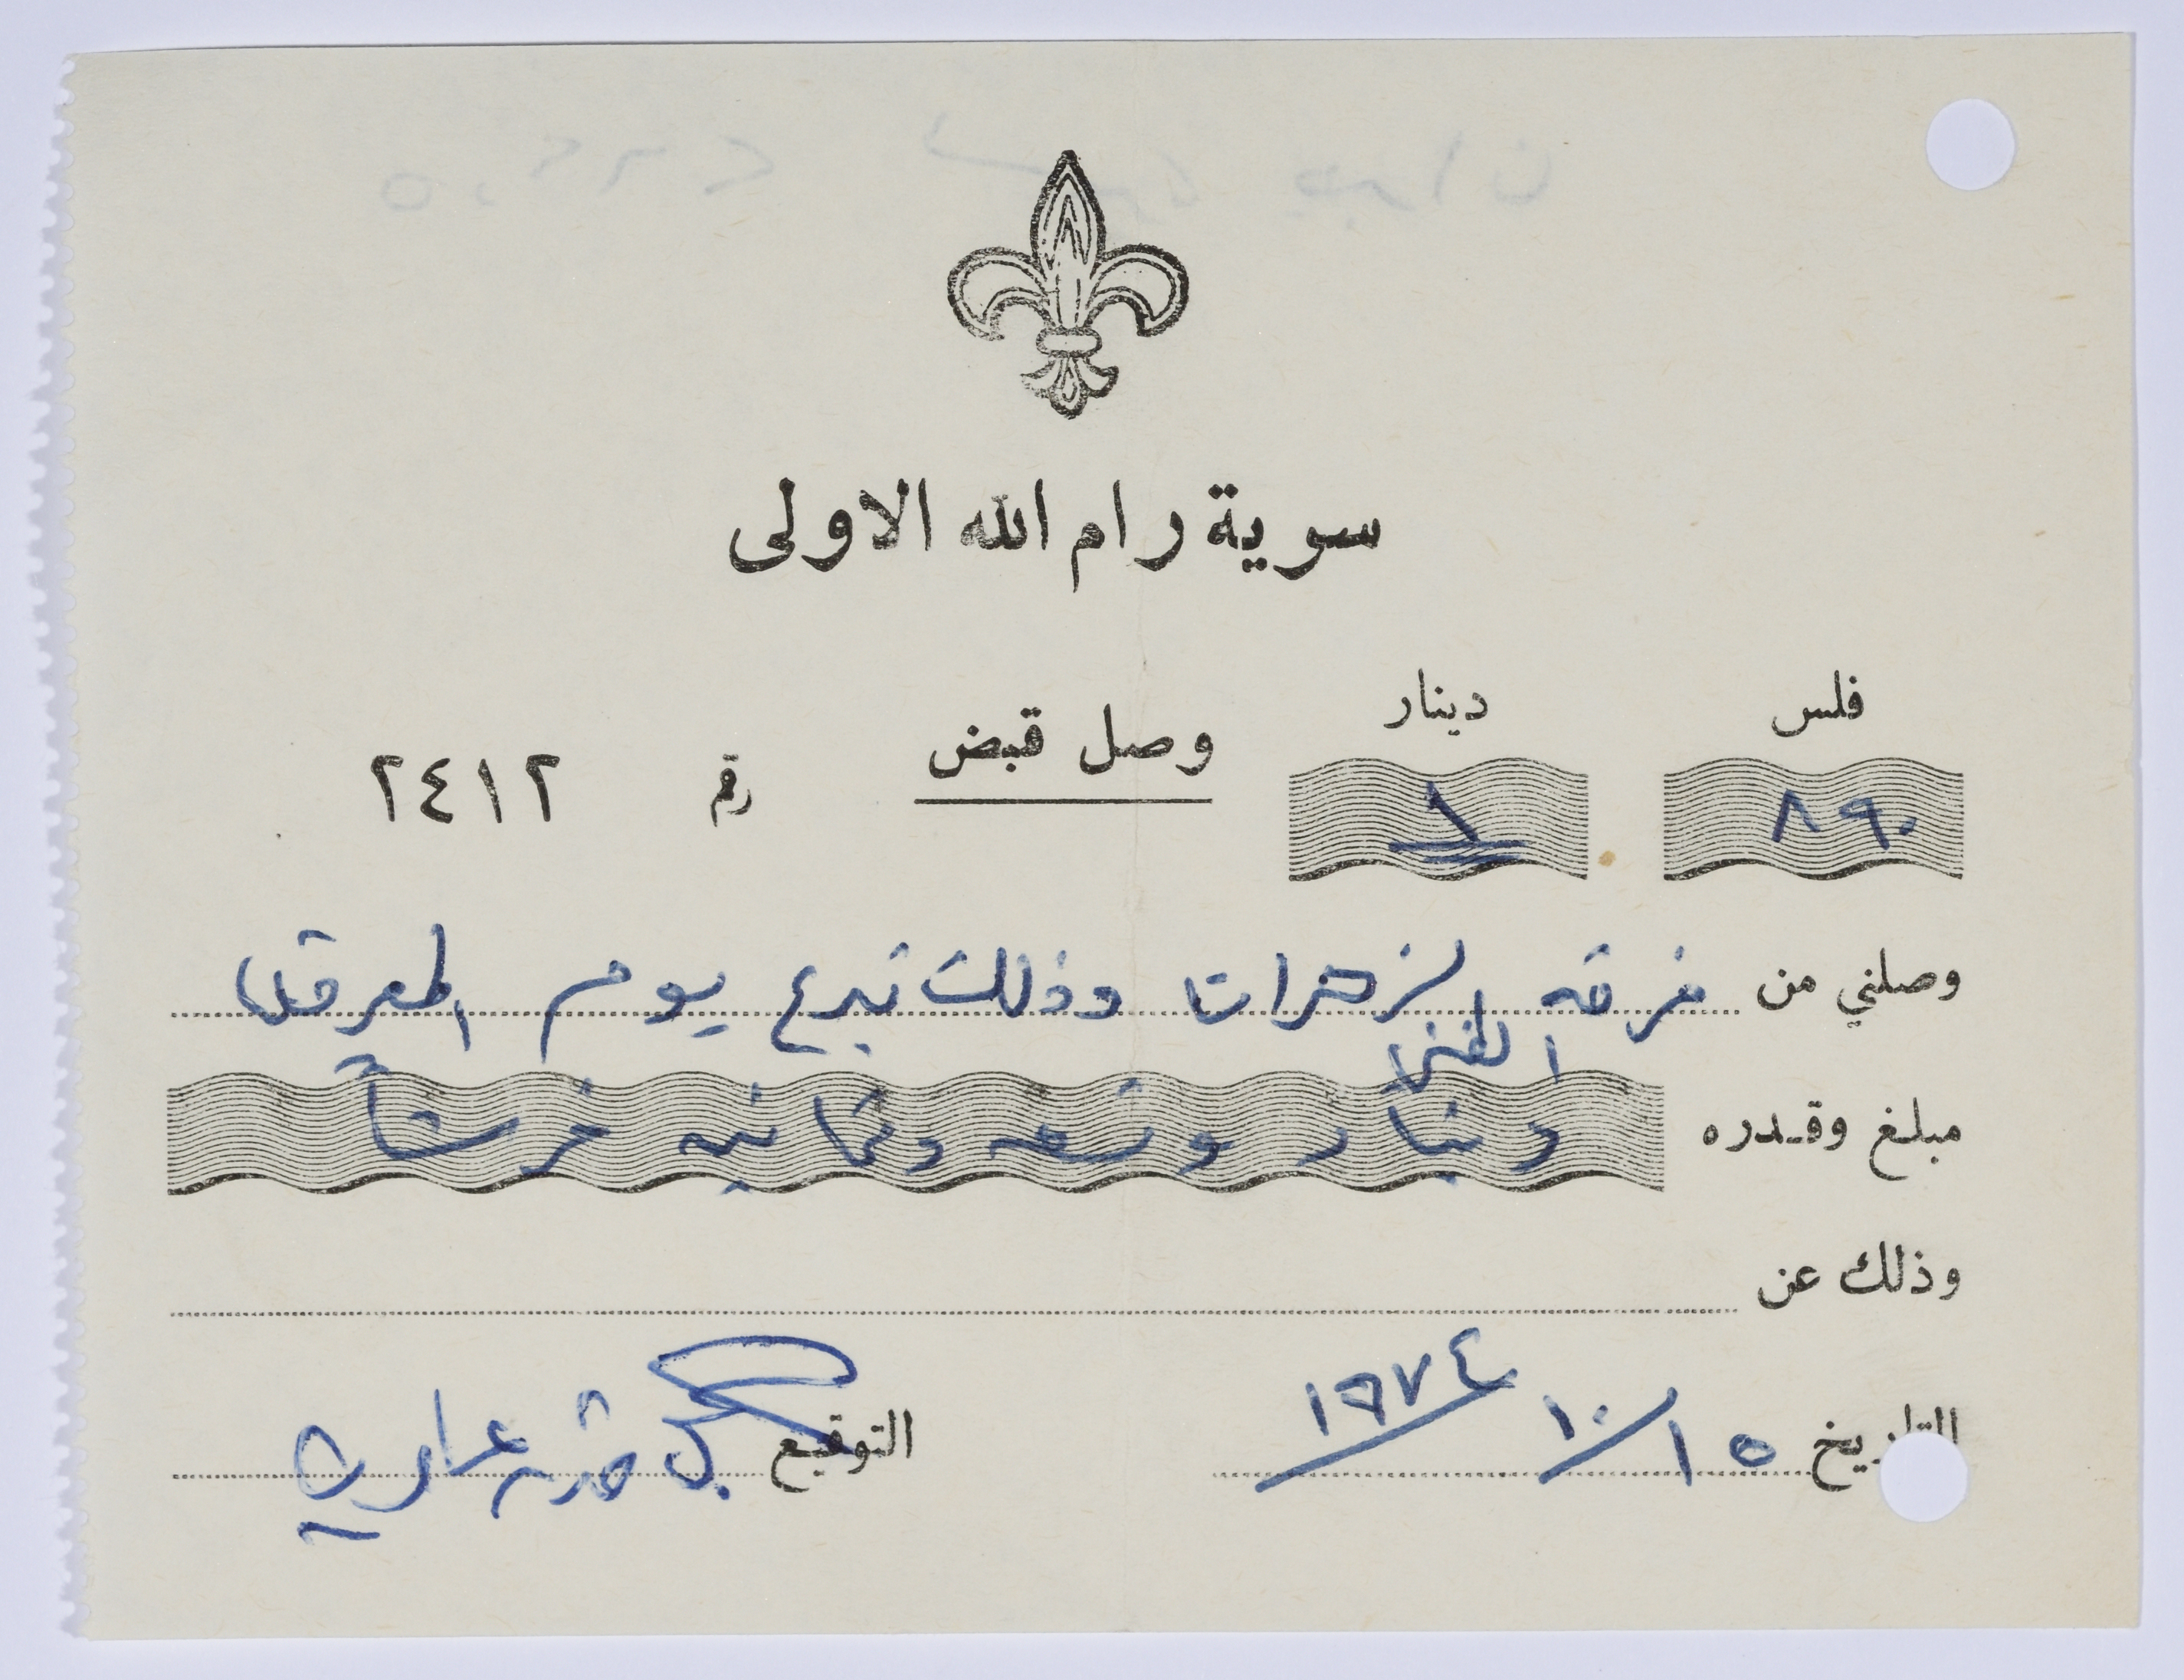 سرية رام الله الاولى
فلس دينار
وصل قبض رقم ٢٤١٢
٨٩٠ ١
وصلني من فرقة الزهرات وذلك تبرع يوم
مبلغ وقدره دينار وتسعه وثمانيه قرشاً
وذلك عن
التاريخ ١٥/١٠/١٩٧٤ التوقيع